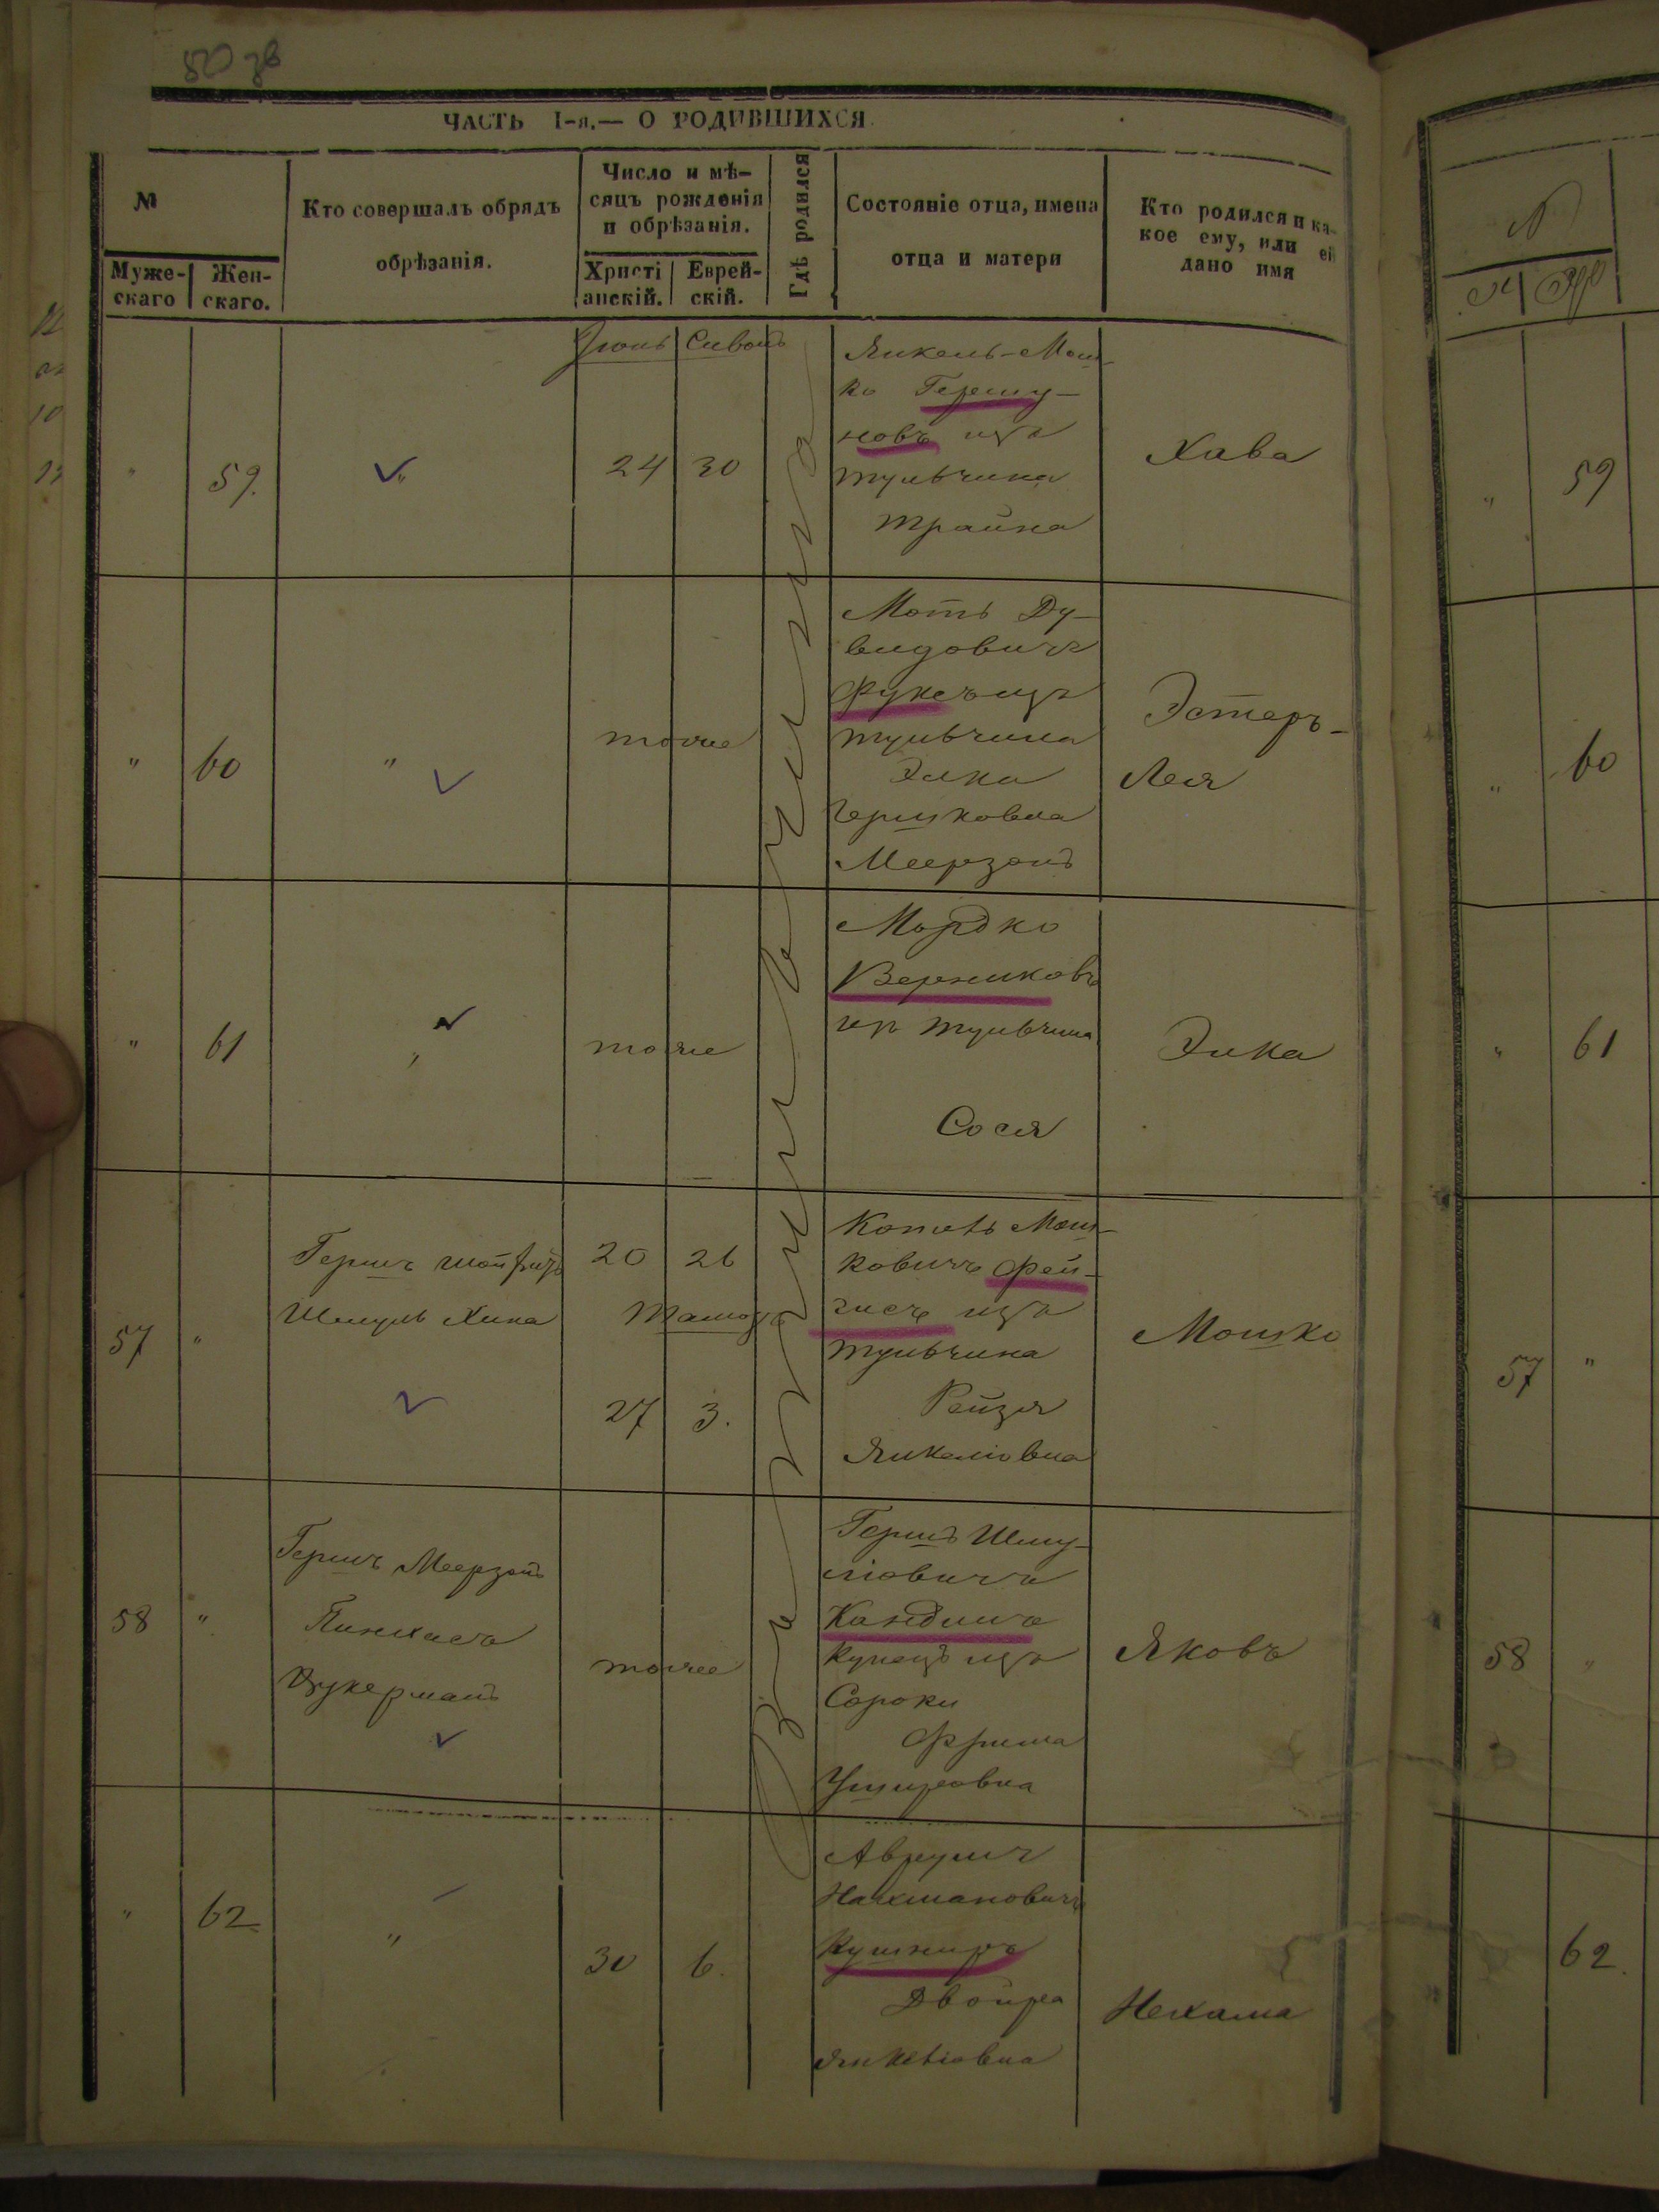 50 зв
ЧАСТЬ I-я.— О РОДИВШИХСЯ
№
Муже-
скаго
Жен-
скаго.
Кто совершалъ обрядъ
обрѣзанія.
Число и мѣ-
сяцъ рожденія
и обрѣзанія.
Христі
анскій.
Еврей-
скій.
Гдѣ родился
Состояніе отца, имена
отца и матери
Кто родился и ка-
кое ему, или ей
дано имя
Іюнь Сивонъ
" 59. " 24 30
Янкель-Мош-
ко Гершу-
новъ изъ
тульчина
Трайна
Хава
" 60 " тоже
Моть Ду-
видовичъ
Фуксъ изъ
тульчина
Элка
Гершковна
Меерзонъ
Эстеръ-
Лея
" 61 " тоже
Мордко
Верниковъ
изъ тульчина
Сося
Элка
57 "
Гершъ
Шмуль Хина
20 26
Тамозъ
27 3.
Копель Мош-
ковичъ Фей-
гисъ изъ
тульчина
Рейзя
Янкеліовна
Мошко
58 "
Гершъ Меерзонъ
Пинхасъ
Цукерманъ
тоже
Гершъ Шму-
ліовичъ
Кандишъ
купецъ изъ
Сороки
Фрима
Ушировна
Яковъ
" 62 " 30 6.
Аврумъ
Нахмановичъ
Кушниръ
Двойра
Янкеліовна
Нехама
№
М Ж
" 59
" 60
" 61
57 "
58 "
62.